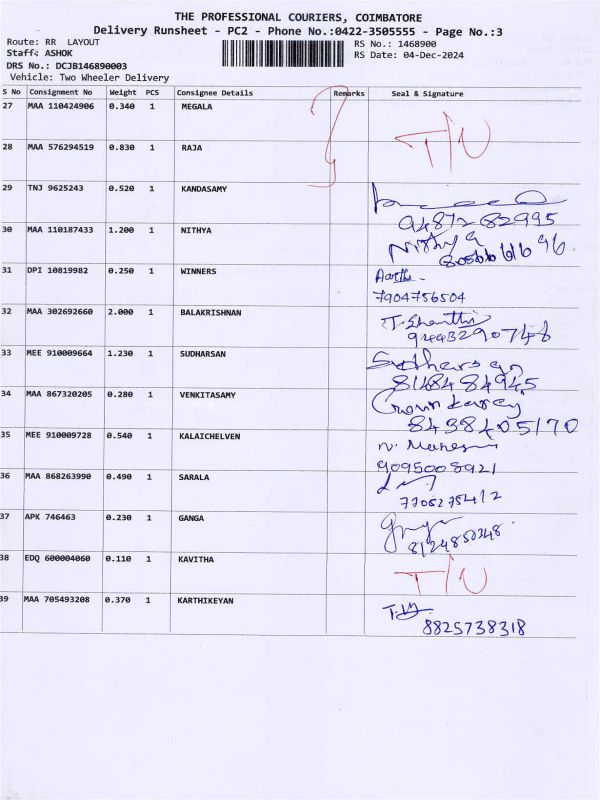 THE PROFESSIONAL COURIERS, COIMBATORE
Delivery Runsheet - PC2 - Phone No.:0422-3505555 - Page No.:3
Route: RR LAYOUT
RS No.: 1468900
Staff: ASHOK
RS Date: 04-Dec-2024
DRS No.: DCJB146890003
Vehicle: Two Wheeler Delivery
S No Consignment No Weight PCS Consignee Details Remarks Seal & Signature
27 MAA 110424906 0.340 1 MEGALA
T/U
28 MAA 576294519 0.830 1 RAJA
29 TNJ 9625243 0.520 1 KANDASAMY
9487282995
30 MAA 110187433 1.200 1 NITHYA
31 DPI 10819982 0.250 1 WINNERS
7904756504
32 MAA 302692660 2.000 1 BALAKRISHNAN T. Shanthi
33 MEE 910009664 1.230 1 SUDHARSAN Sudharsan
8148484945
34 MAA 867320205 0.280 1 VENKITASAMY
8438405170
35 MEE 910009728 0.540 1 KALAICHELVEN
9095008921
36 MAA 868263990 0.490 1 SARALA
37 APK 746463 0.230 1 GANGA
8124850348
38 EDQ 600004060 0.110 1 KAVITHA T/U
39 MAA 705493208 0.370 1 KARTHIKEYAN
8825738318